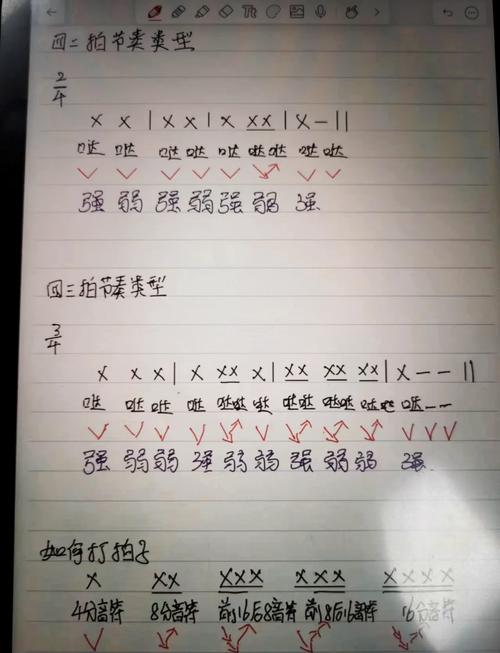 四二拍节奏类型
2/4
X X | X X | X XX | X – ||
哒 哒 哒 哒 哒 哒哒 哒 哒
强 弱 强 弱 强 弱 强
四三拍节奏类型
3/4
X X X | X XX X | XX XX XX | X – – ||
哒 哒 哒 哒 哒哒 哒 哒哒 哒哒 哒哒 哒 – –
强 弱 弱 强 弱 弱 强 弱 弱 强
如何打拍子
X XX XXX XXX XXXX
4分音符 8分音符 前16后8音符 前8后16音符 16分音符